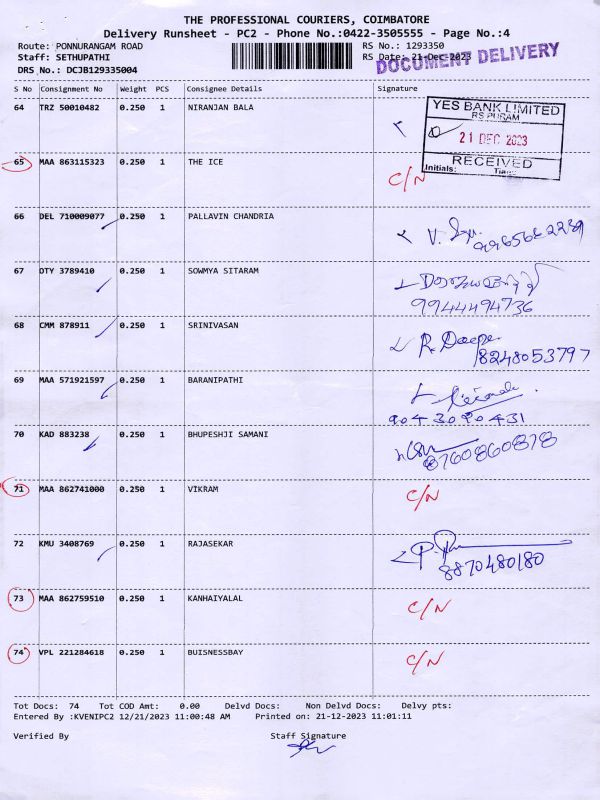 THE PROFESSIONAL COURIERS, COIMBATORE
Delivery Runsheet - PC2 - Phone No.:0422-3505555 - Page No.:4
Route: PONNURANGAM ROAD RS No.: 1293350
Staff: SETHUPATHI RS Date: 21-Dec-2023
DOCUMENT DELIVERY
DRS No.: DCJB129335004
S No Consignment No Weight PCS Consignee Details Signature
64 TRZ 50010482 0.250 1 NIRANJAN BALA
YES BANK LIMITED
RS PURAM
21 DEC 2023
RECEIVED
Initials: Time:
65 MAA 863115323 0.250 1 THE ICE C/N
66 DEL 710009077 0.250 1 PALLAVIN CHANDRIA V.
67 DTY 3789410 0.250 1 SOWMYA SITARAM
9944494736
68 CMM 878911 0.250 1 SRINIVASAN R. Deepa
8248053797
69 MAA 571921597 0.250 1 BARANIPATHI
9043090431
70 KAD 883238 0.250 1 BHUPESHJI SAMANI
8760860878
71 MAA 862741000 0.250 1 VIKRAM C/N
72 KMU 3408769 0.250 1 RAJASEKAR
8870480180
73 MAA 862759510 0.250 1 KANHAIYALAL C/N
74 VPL 221284618 0.250 1 BUISNESSBAY C/N
Tot Docs: 74 Tot COD Amt: 0.00 Delvd Docs: Non Delvd Docs: Delvy pts:
Entered By :KVENIPC2 12/21/2023 11:00:48 AM Printed on: 21-12-2023 11:01:11
Verified By Staff Signature